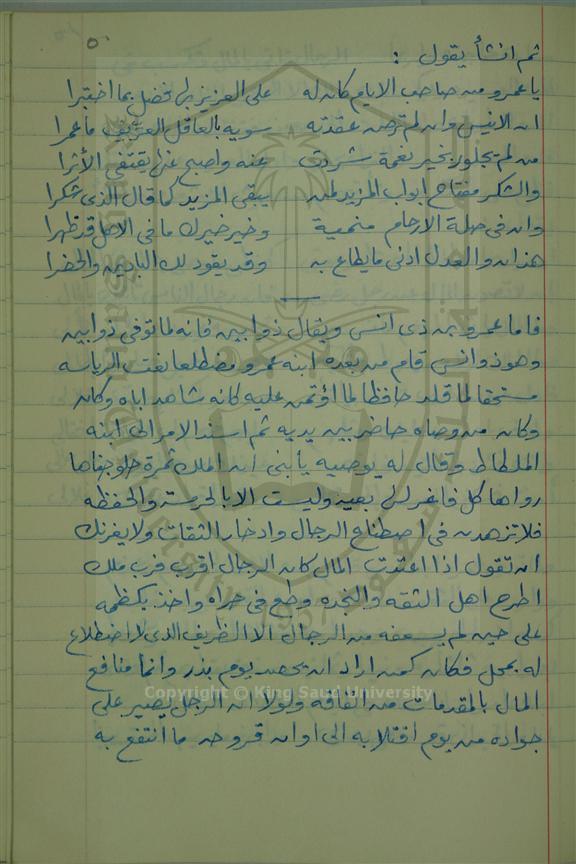 ٥
ثم انشأ يقول :
يا عمرو من صاحب الايام كان له على العزيز بما اختبرا
ان الانيس وان لم ترض عقدته سوية بالعاقل ما عمرا
من لم يجاور بخير نعمة شردت عنه واصبح يقتفى الأثرا
والشكر مفتاح ابواب المزيد لمن يبقى المزيد كما قال الذى شكرا
وان فى صلة الارحام منمية وخير خيرك ما فى الاهل قد ظهرا
هذا والعدل ادنى ما يطاع به وقد يقود لك البادين والحضرا
فاما عمرو بن ذى انس ويقال ذو ابين فانه لما توفى ذو ابين
وهو ذو انس قام من بعده ابنه عمرو مضطلعا الرياسه
مستحقا لما قلد حافظا لما اؤتمن عليه كانه شاهد اباه وكان
وكان من وصاه حاضر بين يديه ثم اسند الامر الى ابنه
الملطاط وقال له يوصيه يا بنى ان الملك ثمرة حلو جناها
رواها كل فاغر بعيد وليست الا بالحرسة والحفظه
فلا تزهدن فى اصطناع الرجال وادخار الثقات ولا يغرنك
ان تقول اذا اعتدت المال كان الرجال اقرب فرب ملك
اطرح اهل الثقه والنجده وطمع فى واخذ بكظمه
على حين لم يسعفه من الرجال الا الظريف الذى لا اضطلاع
له بمحل فكان كمن اراد ان يحصد يوم بذر وانما منافع
المال بالمقدمات من الفاقه ولولا ان الرجل يصير على
جواده من يوم افتلا به الى اوان ما انتفع به
Copyright © King Saud University